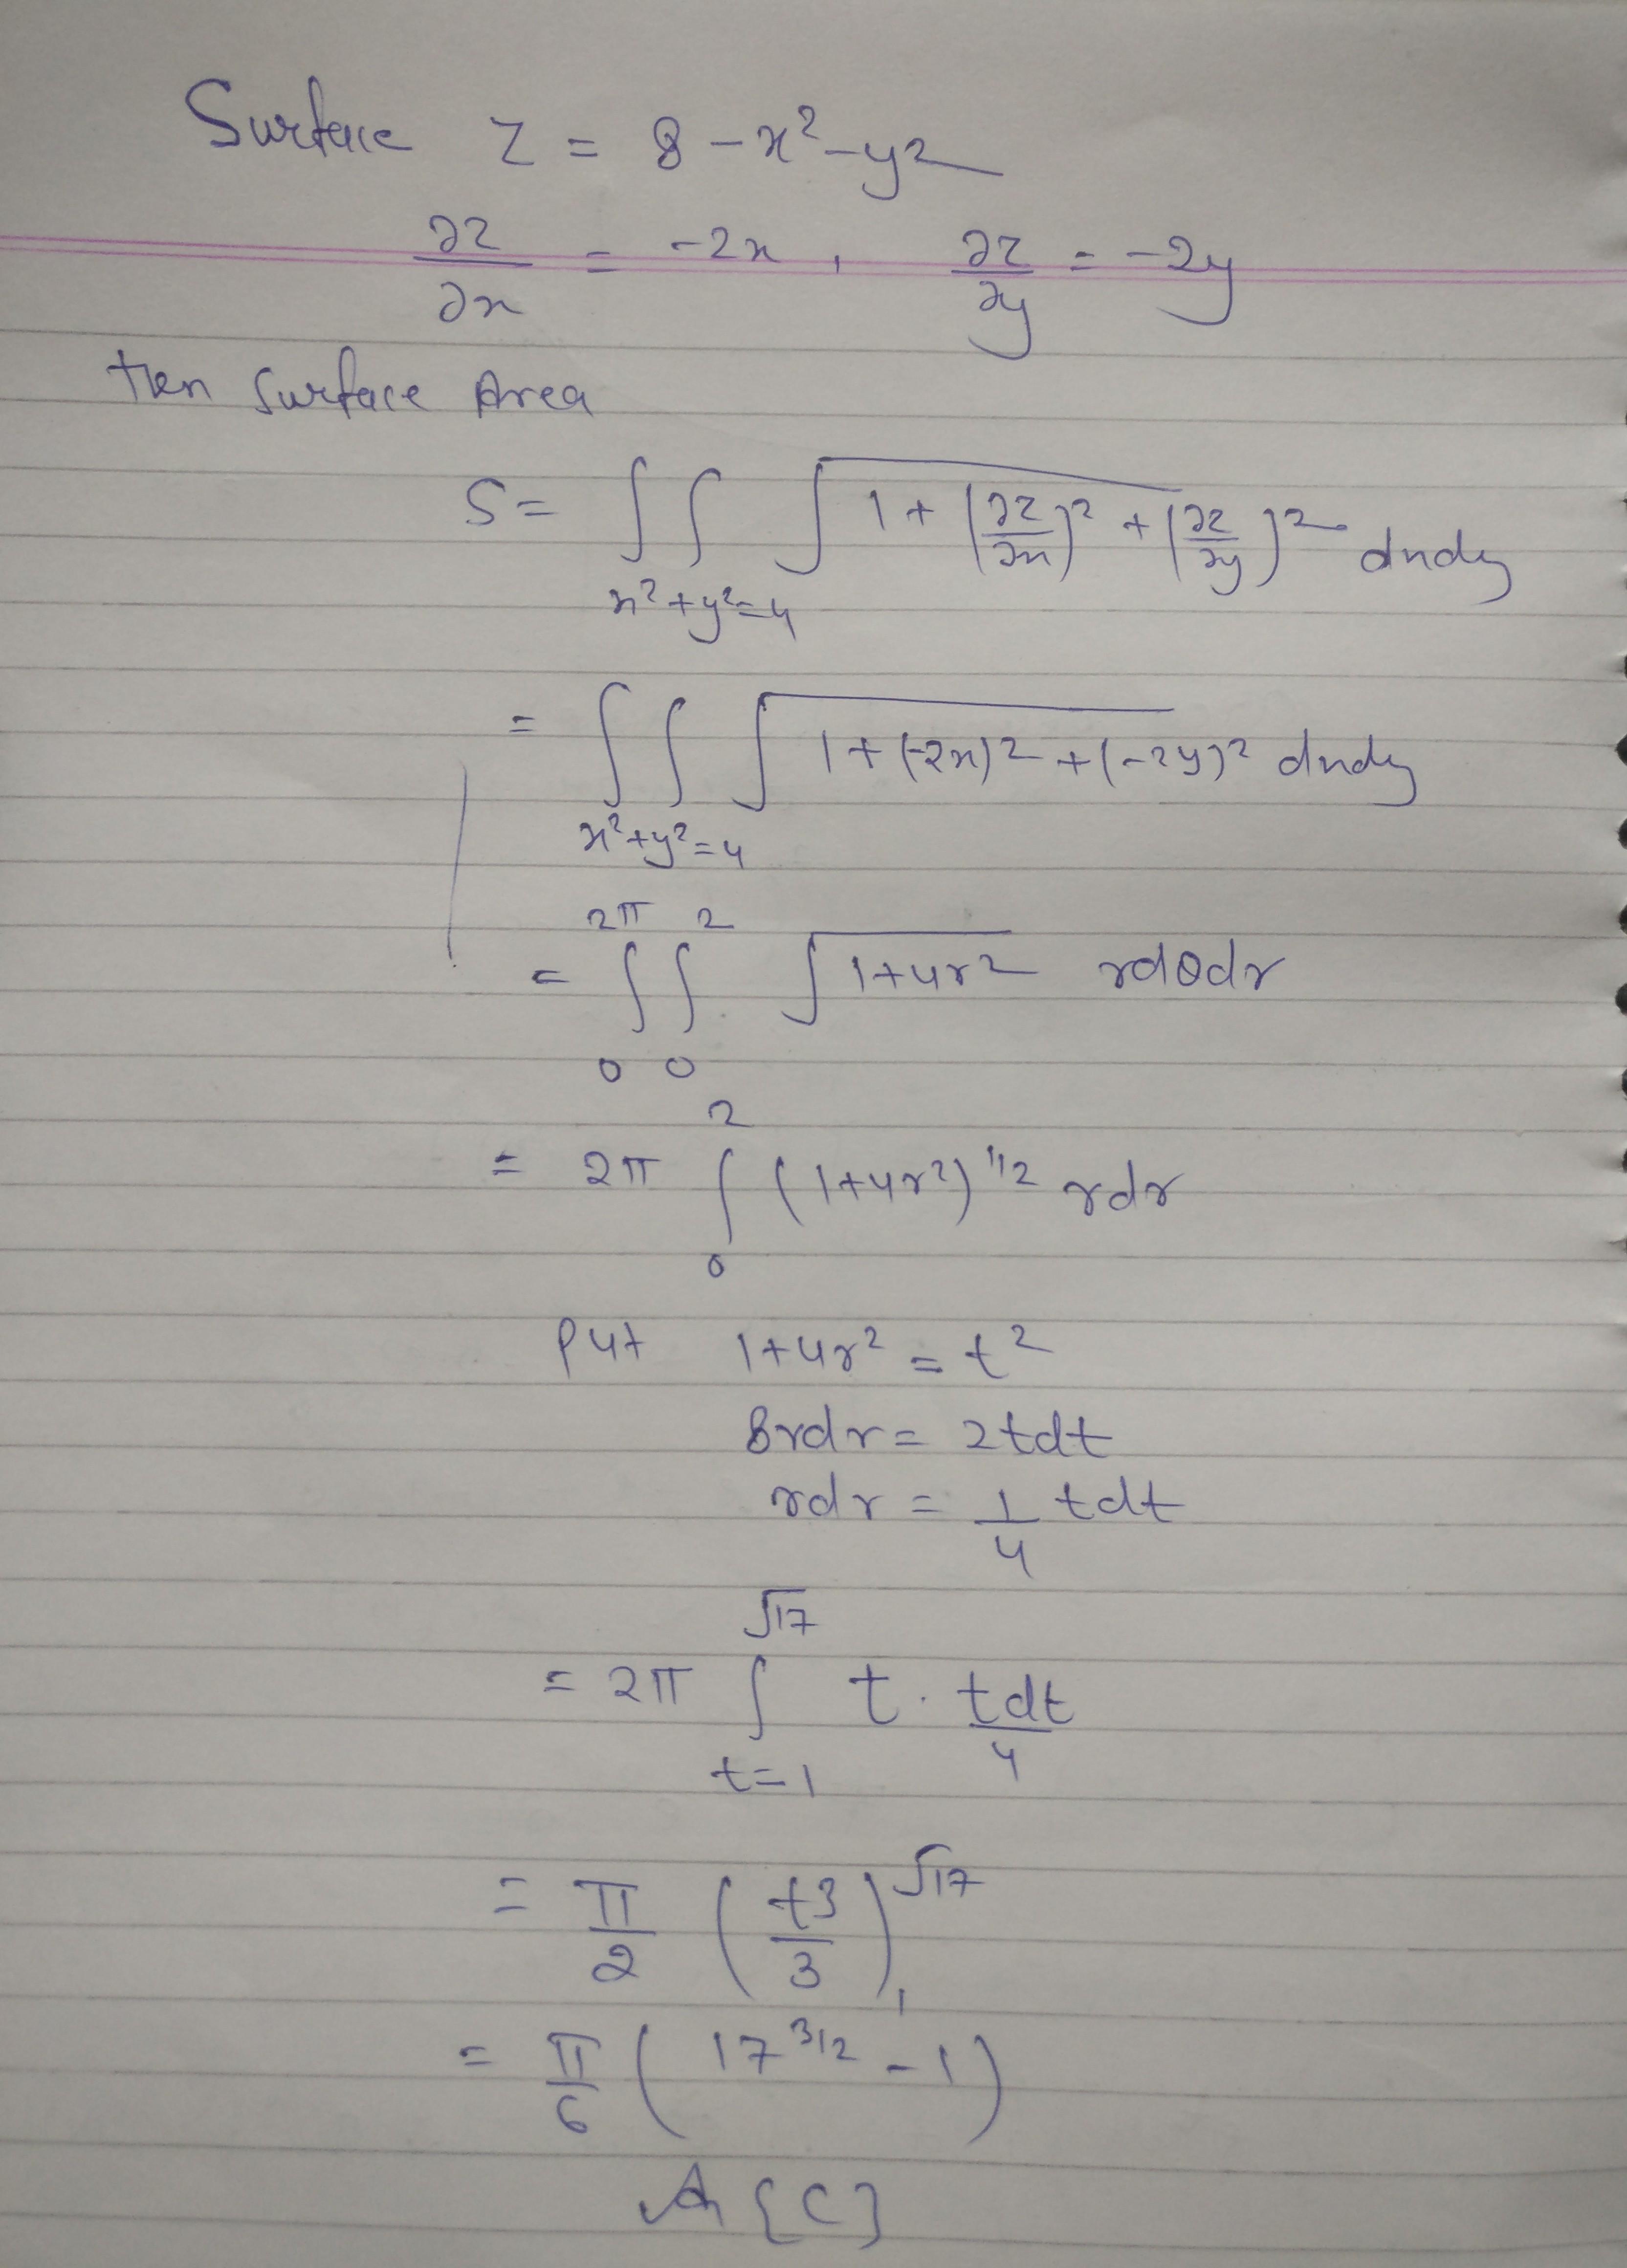 Surface z = 8 - x² - y²
∂z/∂x = -2x , ∂z/∂y = -2y
then Surface Area
S = ∫∫ √1 + (∂z/∂x)² + (∂z/∂y)² dxdy
x²+y²=4
= ∫∫ √1 + (-2x)² + (-2y)² dxdy
x²+y²=4
= ∫₀^2π ∫₀^2 √1+4r² rdθdr
= 2π ∫₀^2 (1+4r²)^1/2 rdr
Put 1+4r² = t²
8rdr = 2tdt
rdr = 1/4 tdt
= 2π ∫_t=1^√17 t · tdt/4
= π/2 (t3/3)₁^√17
= π/6 (17^3/2 - 1)
A {C}